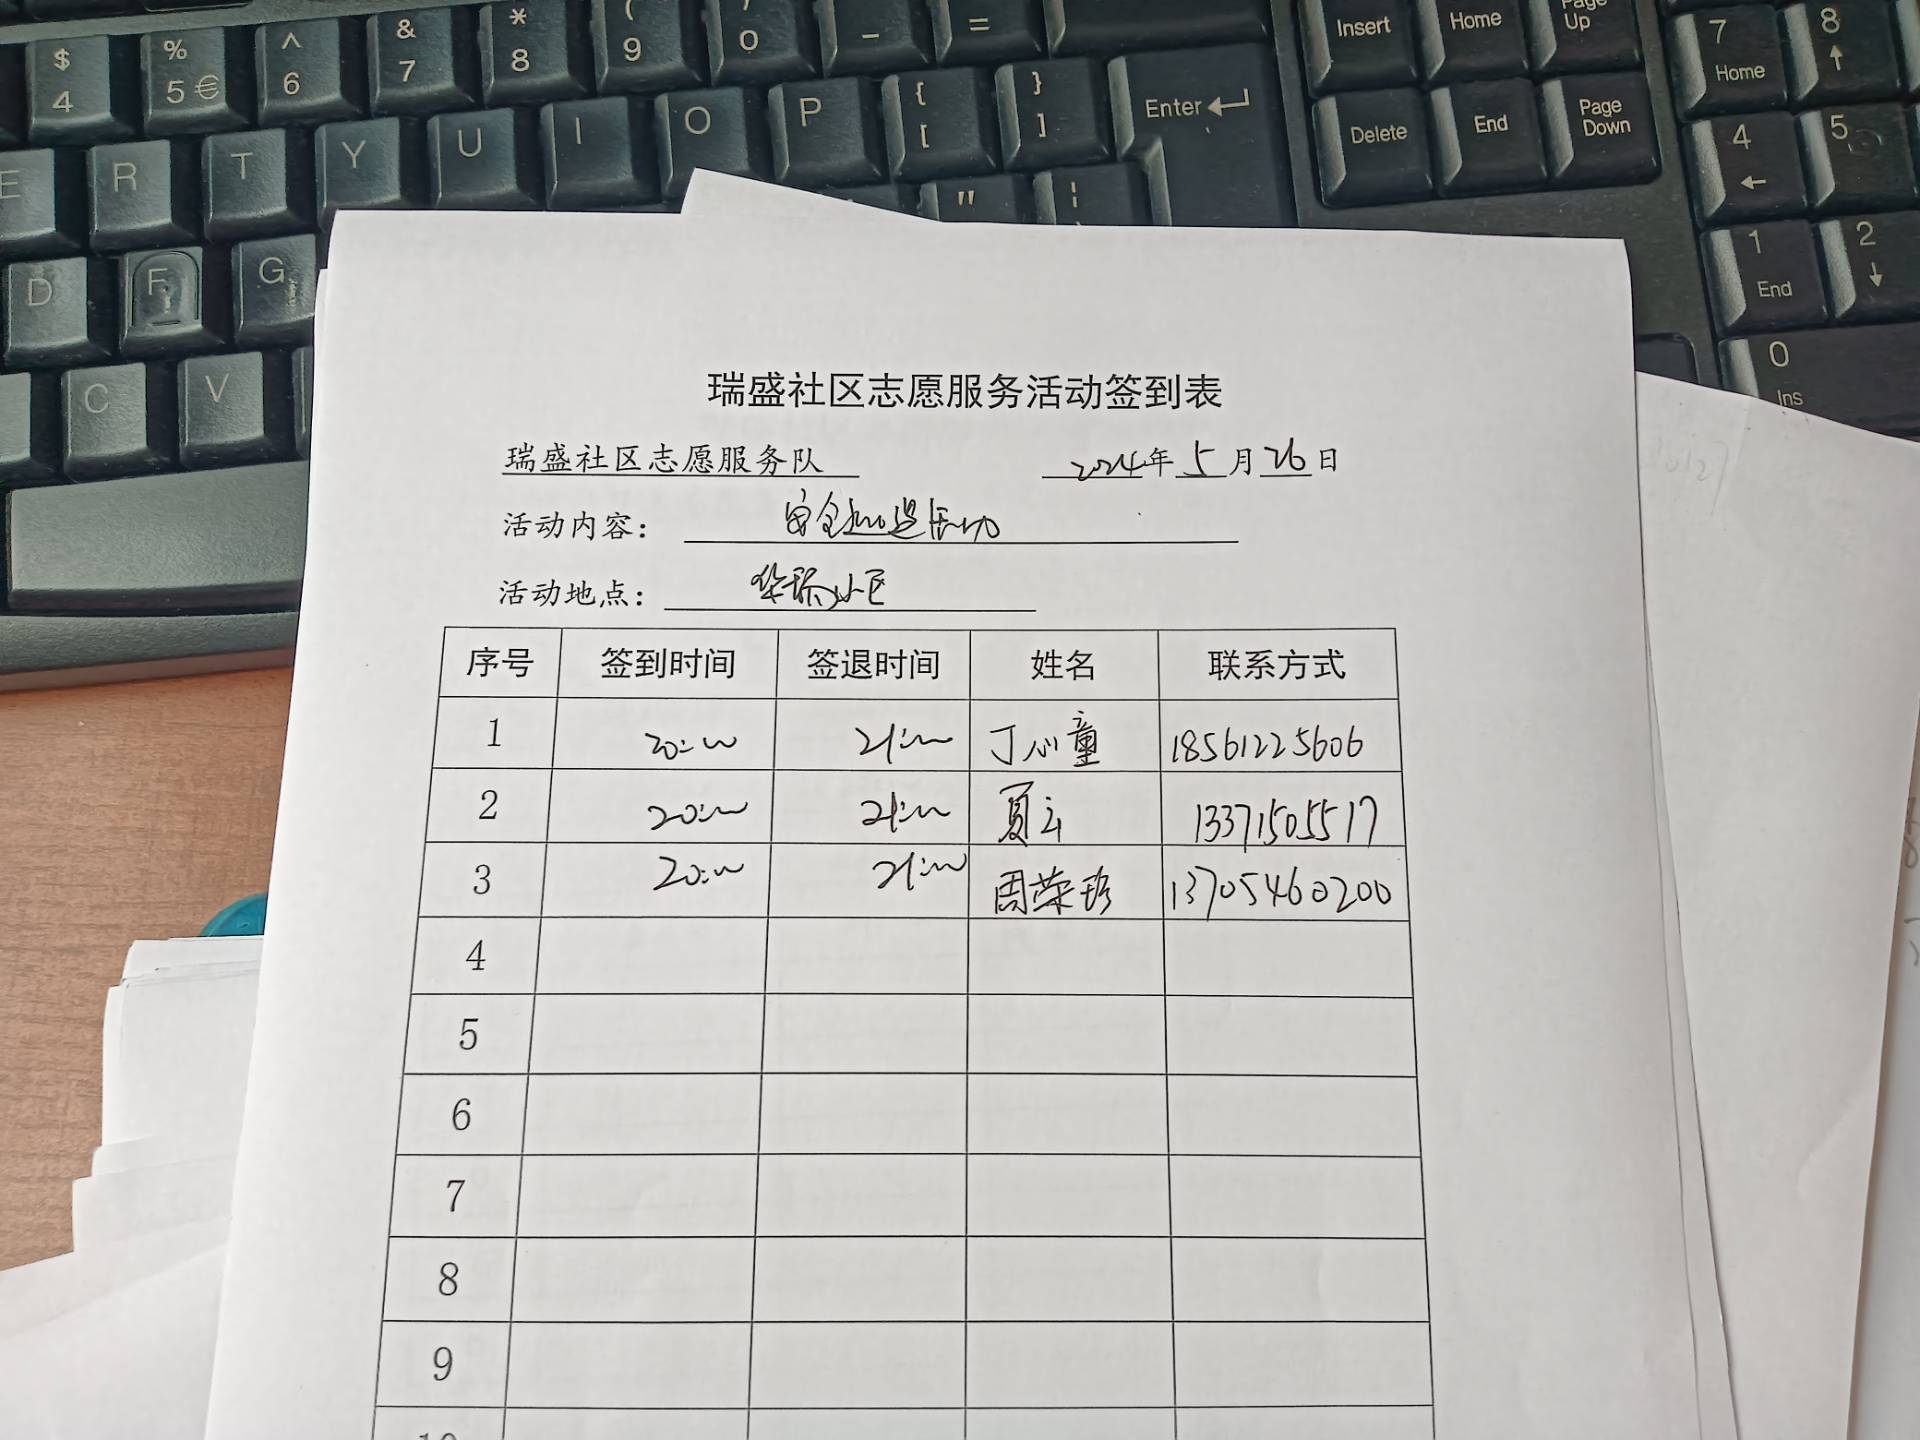 $ 4 % 5 € ^ 6 & 7 * 8 ( 9 ) 0 _ - + = Insert Home Page Up 7 Home 8
E R T Y U I O P { [ } ] Enter Delete End Page Down 4 5
D F G " 1 End 2
C V 0 Ins
瑞盛社区志愿服务活动签到表
瑞盛社区志愿服务队 2024年 5 月 26 日
活动内容: 安全巡逻活动
活动地点: 华瑞小区
序号 签到时间 签退时间 姓名 联系方式
1 20:00 21:00 丁心童 18561225606
2 20:00 21:00 夏云 13371505517
3 20:00 21:00 周荣珍 13705460200
4
5
6
7
8
9
10